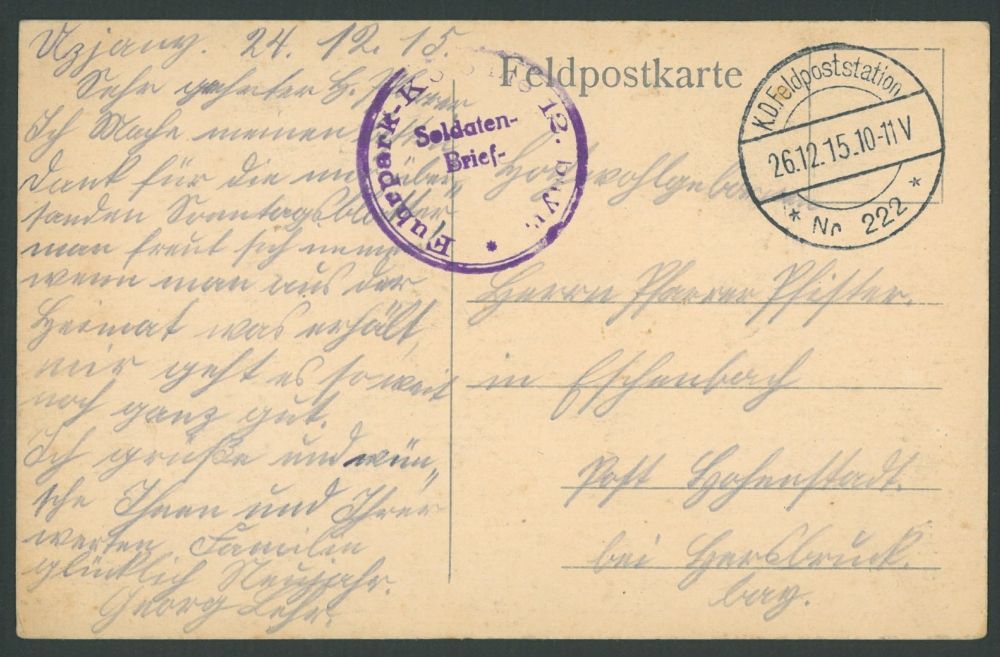 Uzjany. 24. 12. 15.
Sehr geehrter H. Pfarrer
Ich Mache meinen
Dank für die mir über
sanden Sonntagsblätter
man freut sich immer
wenn man aus der
Heimat was erhält,
mir geht es soweit
noch ganz gut.
Ich grüße und wün„
sche Ihnen und Ihrer
werten Familie
glücklich Neujahr.
Georg Lehr.
Feldpostkarte
Fuhrpark-Ko 12. bay.
Soldaten-
Brief-
*
K.D. Feldpoststation
26.12.15.10-11V
* Nr. 222 *
Hochwohlgeboren
Herrn Pfarrer Pfister.
in Eschenbach
Post Hohenstadt.
bei Hersbruck.
bay.